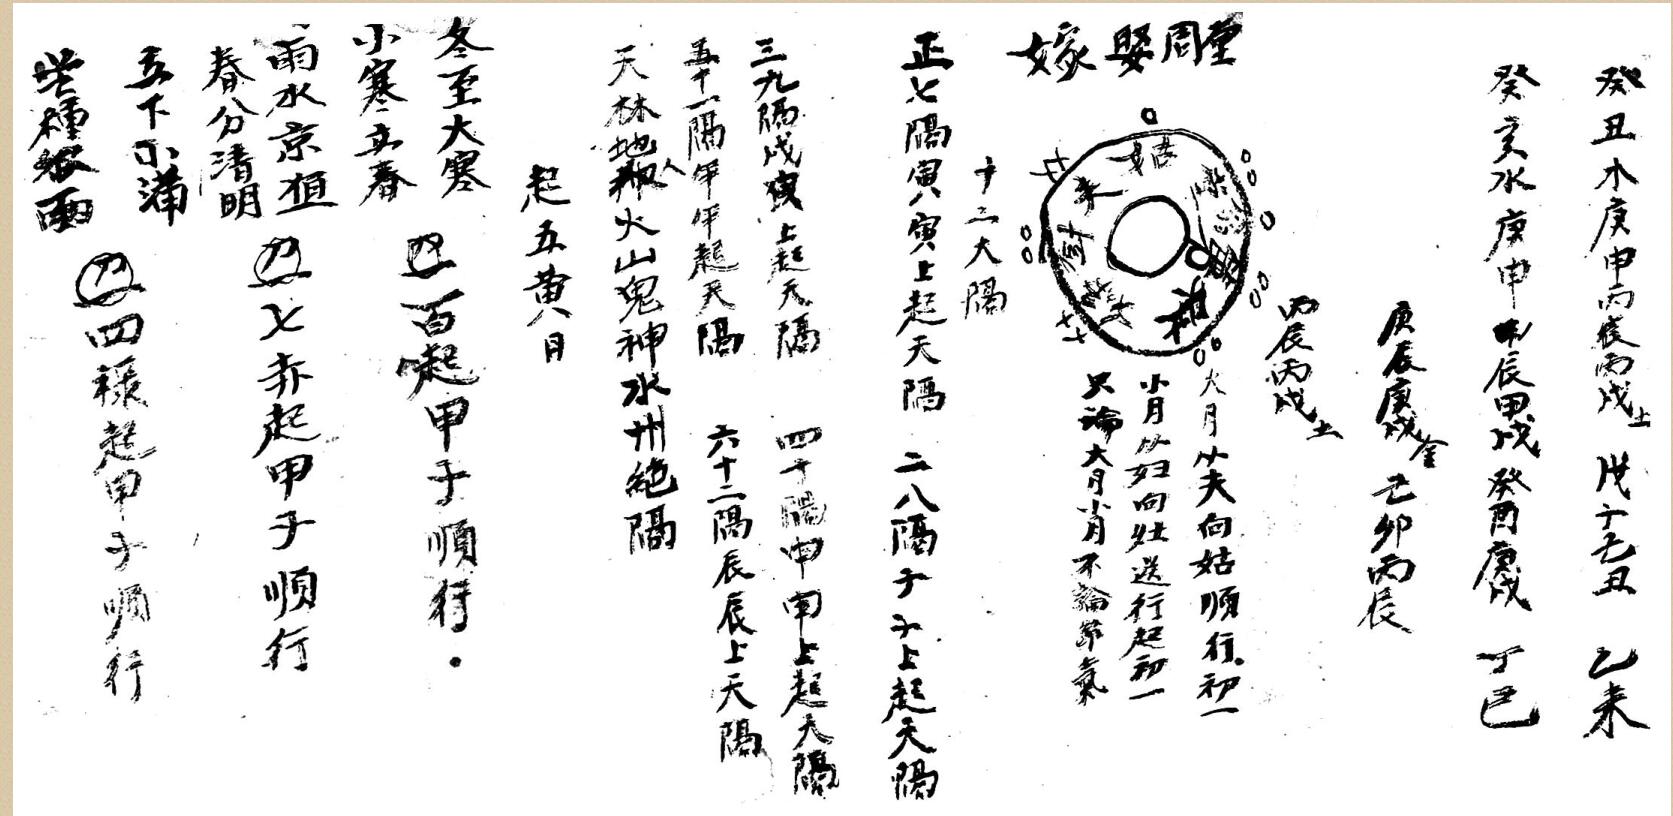 癸丑木庚申丙辰丙戌土 戊子乙丑 乙未
癸亥水庚申 甲辰甲戌 癸酉庚戌 丁巳
庚辰庚戌金 己卯丙辰
丙辰丙戌土
嫁娶周堂
姑
夫
大月从夫向姑順行初一
小月从妇向灶送行起初一
只論大月小月不論節氣
十二大隔
正七隔寅寅上起天隔 二八隔子子上起天隔
三九隔戌戌上起天隔 四十隔申申上起天隔
五十一隔午午起天隔 六十二隔辰辰上天隔
天林地火山鬼神水州絕隔
起五黄月
冬至大寒
小寒立春
百起甲子順行
雨水京直
春分清明
七赤起甲子順行
五下小满
芒種
雨
四禄起甲子順行